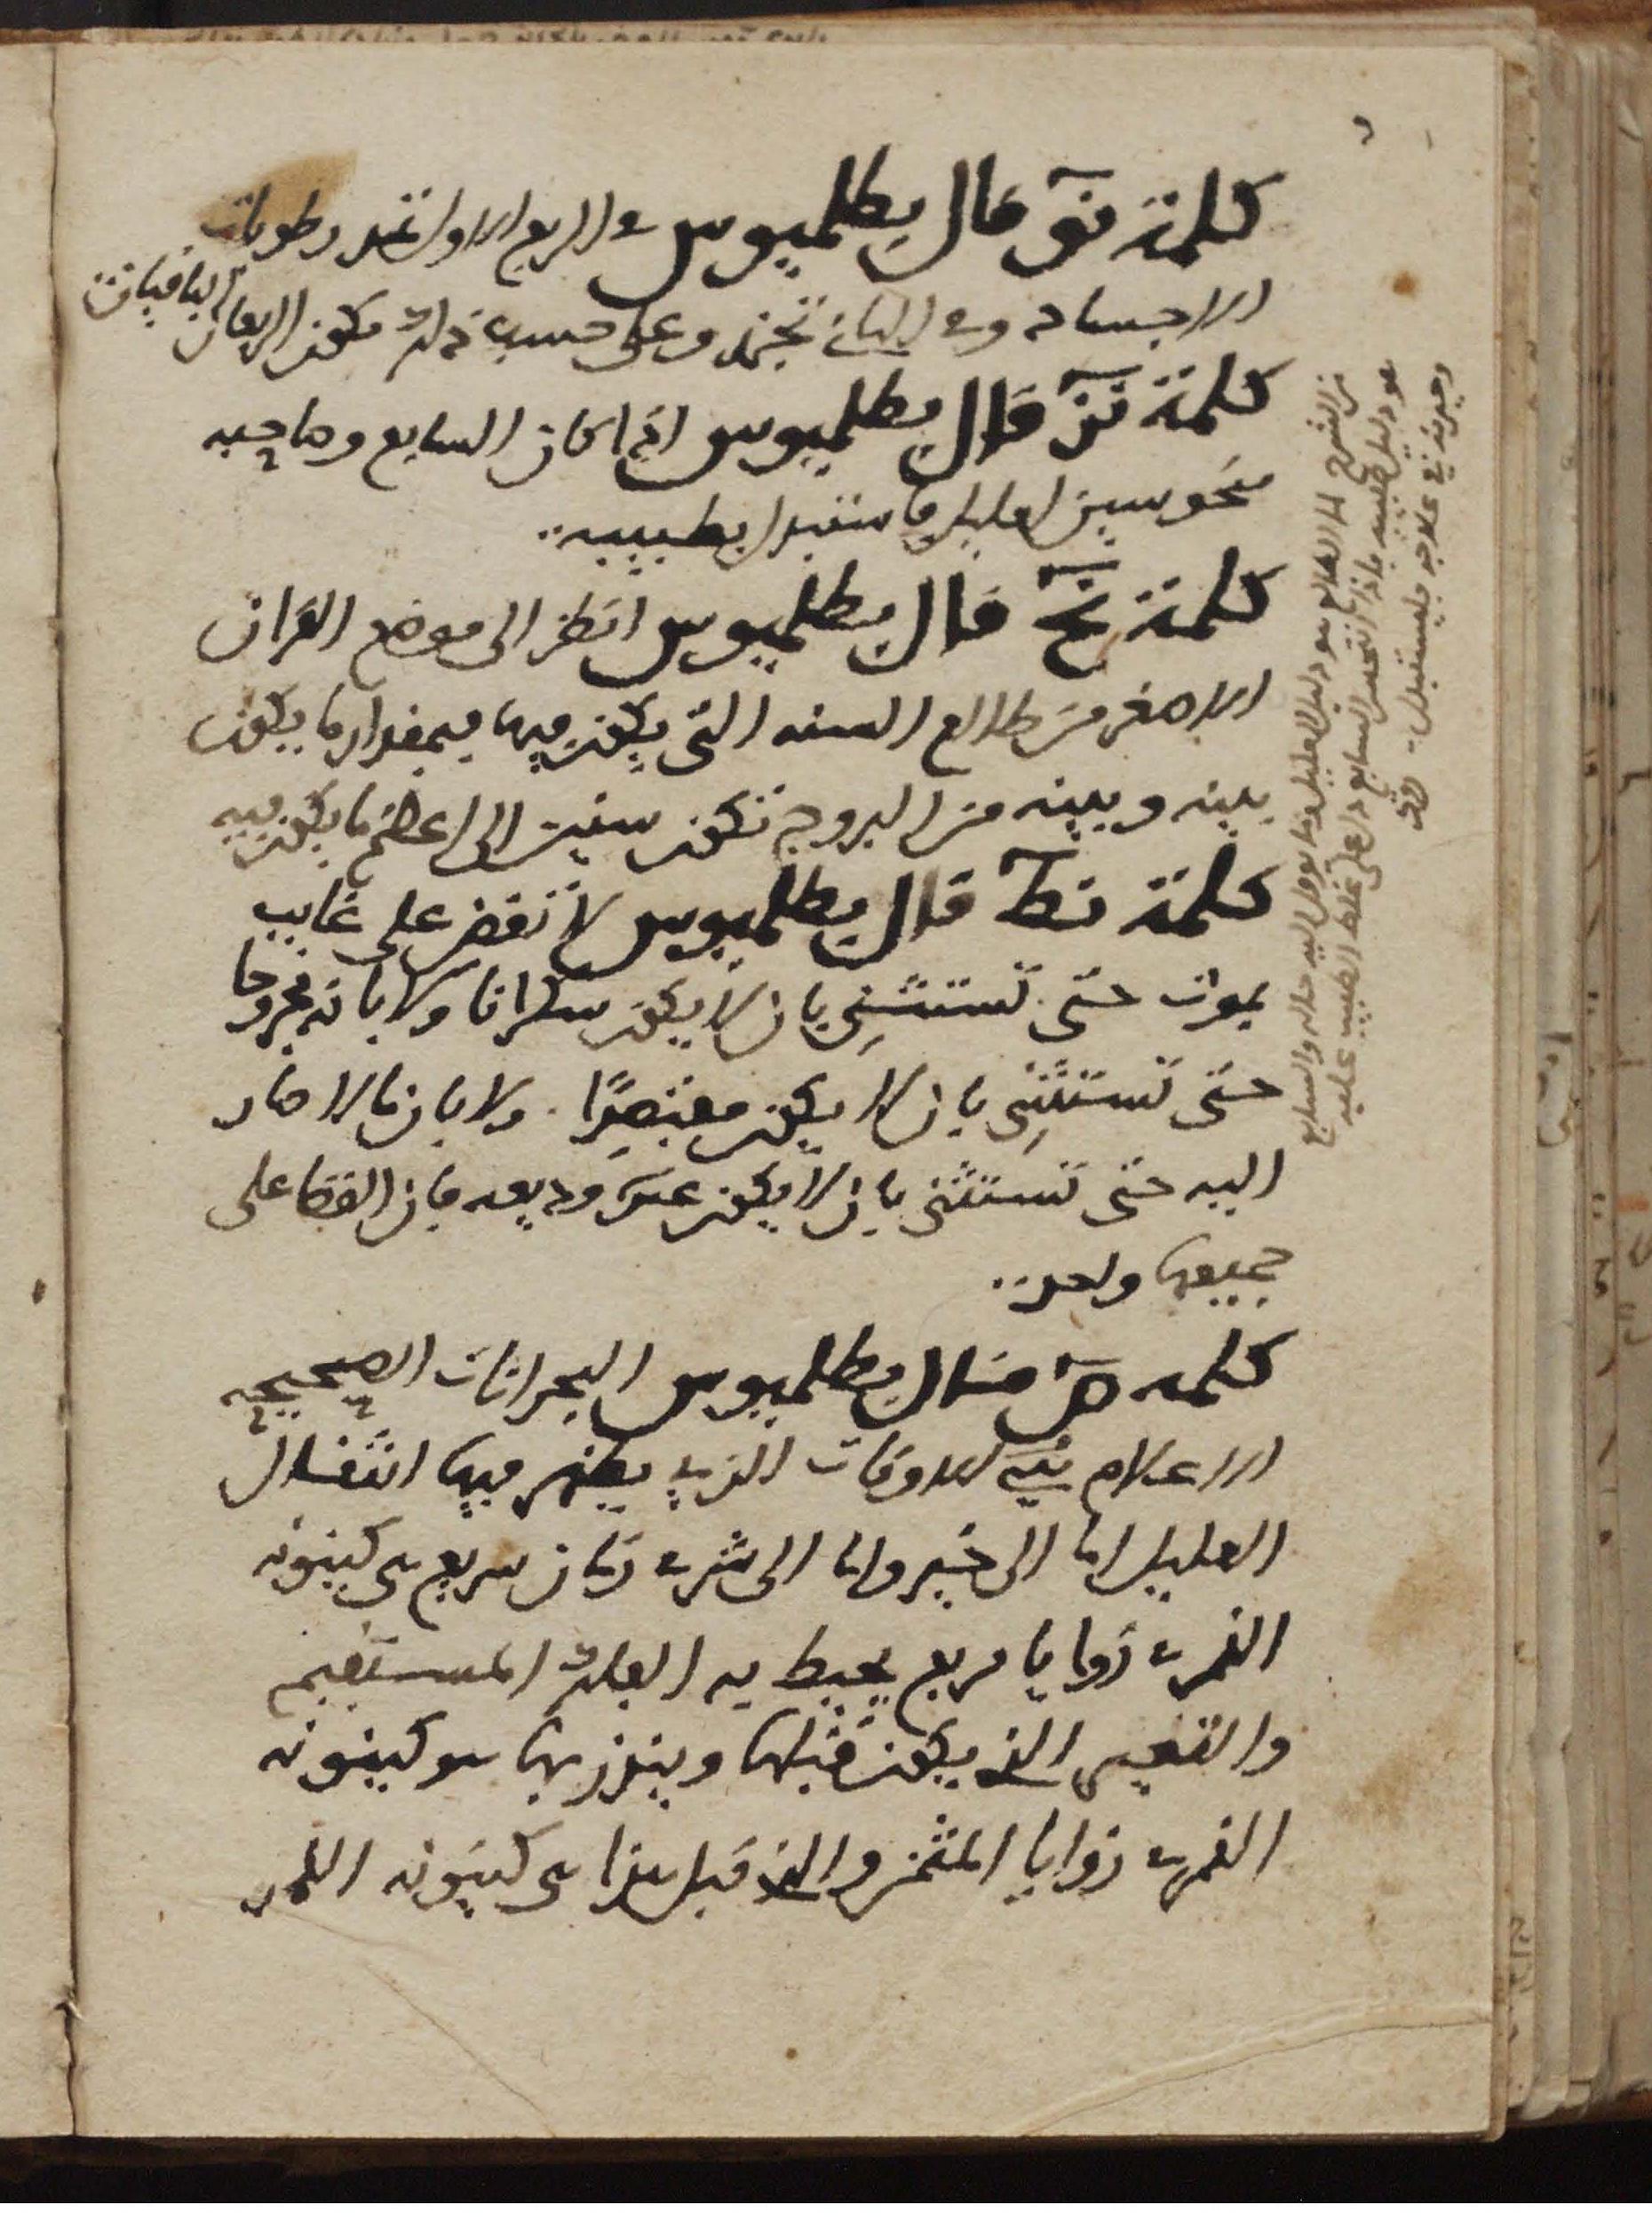 كلمة نو قال بطلميوس في الربع الاول تمد رطوبات
الاجساد وفي الثاني تجزر وعلى حسب ذلك تكون الربعان الباقيان
كلمة نز قال بطلميوس اذا كان السابع وصاحبه
منحوسين لعليل فاستبدل بطبيبه
كلمة نح قال بطلميوس انظر الى موضع القران
الاصغر من طالع السنه التي يكون فيها فبمقدار ما يكون
بينه وبينه من البروج تكون سنين الى اعظم ما يكون فيه
كلمة نط قال بطلميوس لا تقض على غايب
بموت حتى تستثني بان لا يكون سكرانا ولا بانه مجروحا
حتى تستثني بان لا يكون مفتصدًا ولا بان مالا صار
اليه حتى تستثني بان لا يكون عنده وديعه فان القضا على
جميعها واحد
كلمه س قال بطلميوس البحرانات الصحيحه
الاعلام في الاوقات الذي يظهر فيها انتقال
العليل اما الى خير واما الى شر في زمان سريع هي كينونه
القمر في زوايا مربع يحيط به الفلك المستقيم
والتغير الذي يكون قبلها وينذر بها هو كينونه
القمر في زوايا المثمن والذي قبل هذا هي كينونه القمر
من الشرح لما الطالع هو دليل العليل وما يوول اليه حاله والسابع
هو دليل طبيبه فاذا انتحس السابع دل على غلط الطبيب عليه
وحيرته في علاجه فليستبدل